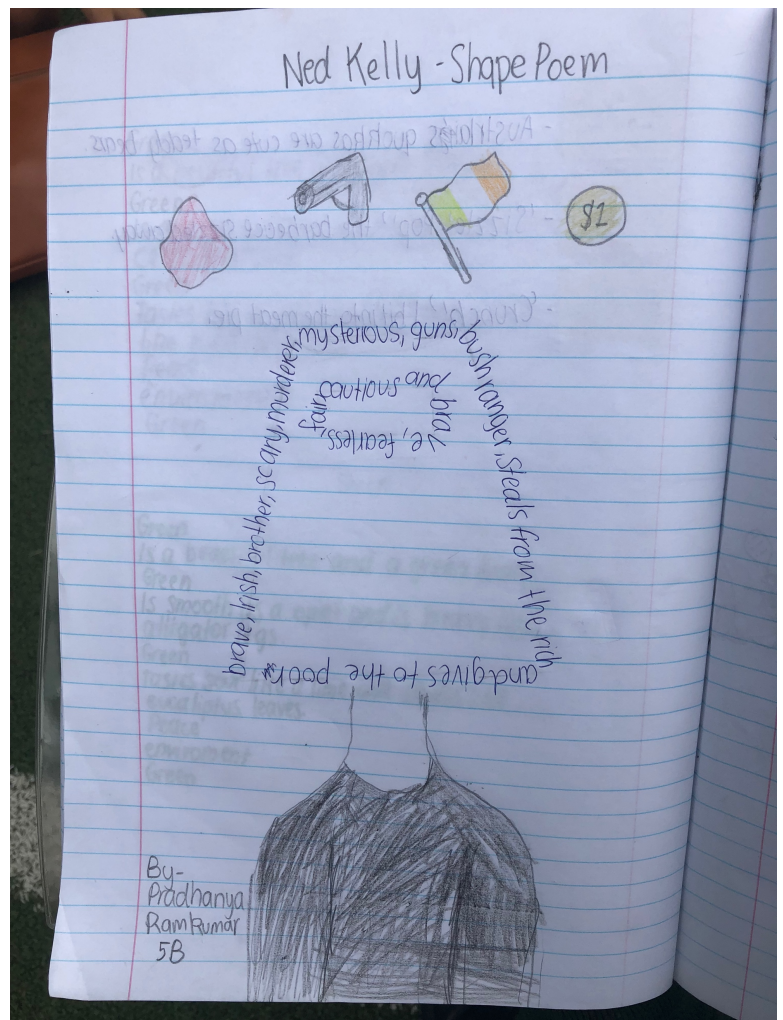 Ned Kelly - Shape Poem
$1
brave, Irish, brother, scary, murderer,
mysterious, guns,
bushranger, steals from the rich
and gives to the poor
cautious and
brave, fearless,
fair,
By-
Pradhanya
Ramkumar
5B